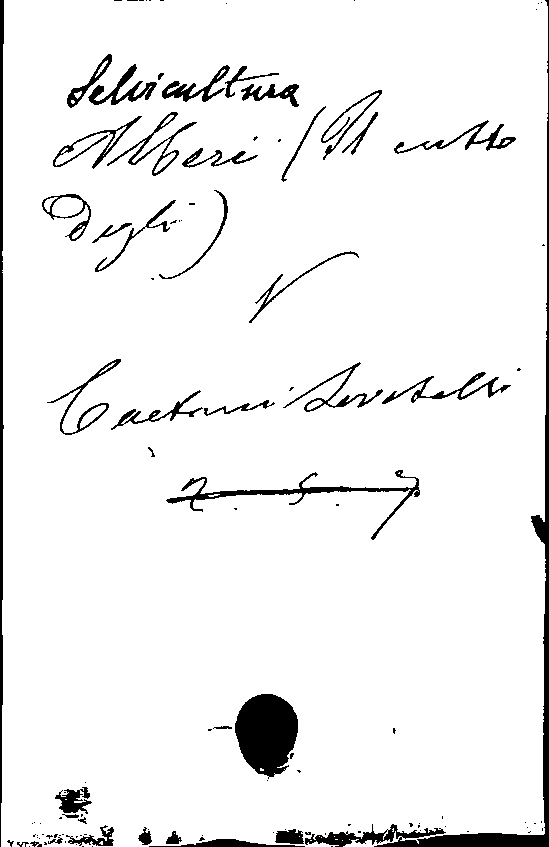 Selvicultura
Alberi (Il culto
degli)
V
Caetani Lovatelli
2. 5. 7.